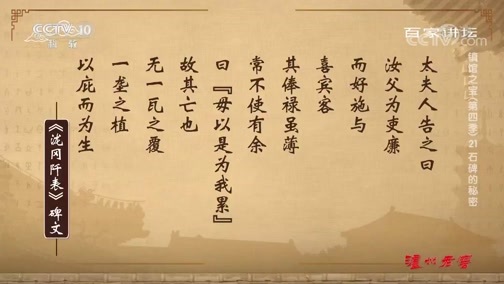 CCTV 10
科教
百家讲坛
CCTV.com
太夫人告之曰
汝父为吏廉
而好施与
喜宾客
其俸禄虽薄
常不使有余
曰『毋以是为我累』
故其亡也
无一瓦之覆
一垄之植
以庇而为生
《泷冈阡表》碑文
镇馆之宝（第四季）21 石碑的秘密
泸州老窖